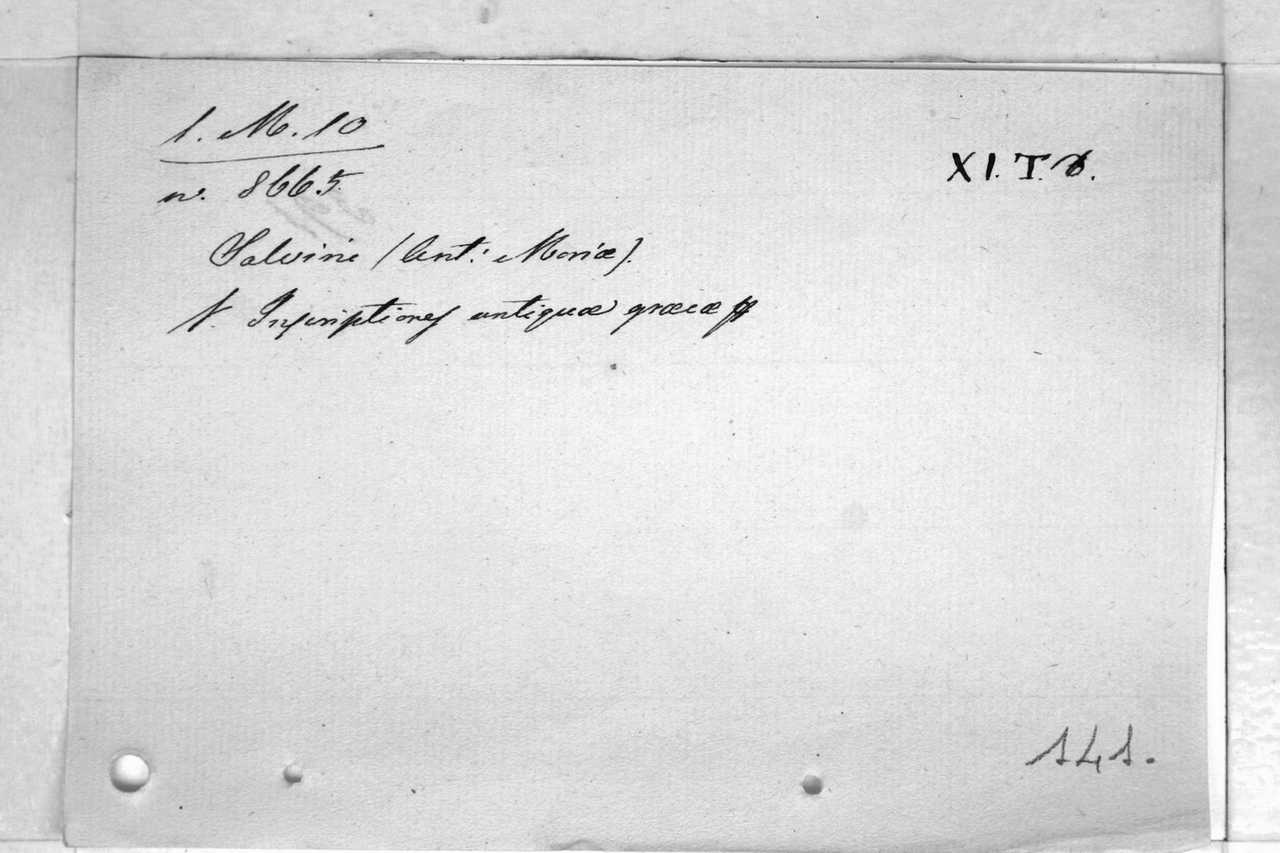 1. M. 10
n. 8665.
XI. T. 8.
Salvini (Ant: Mariæ).
V. Inscriptiones antiquæ græcæ &
141.